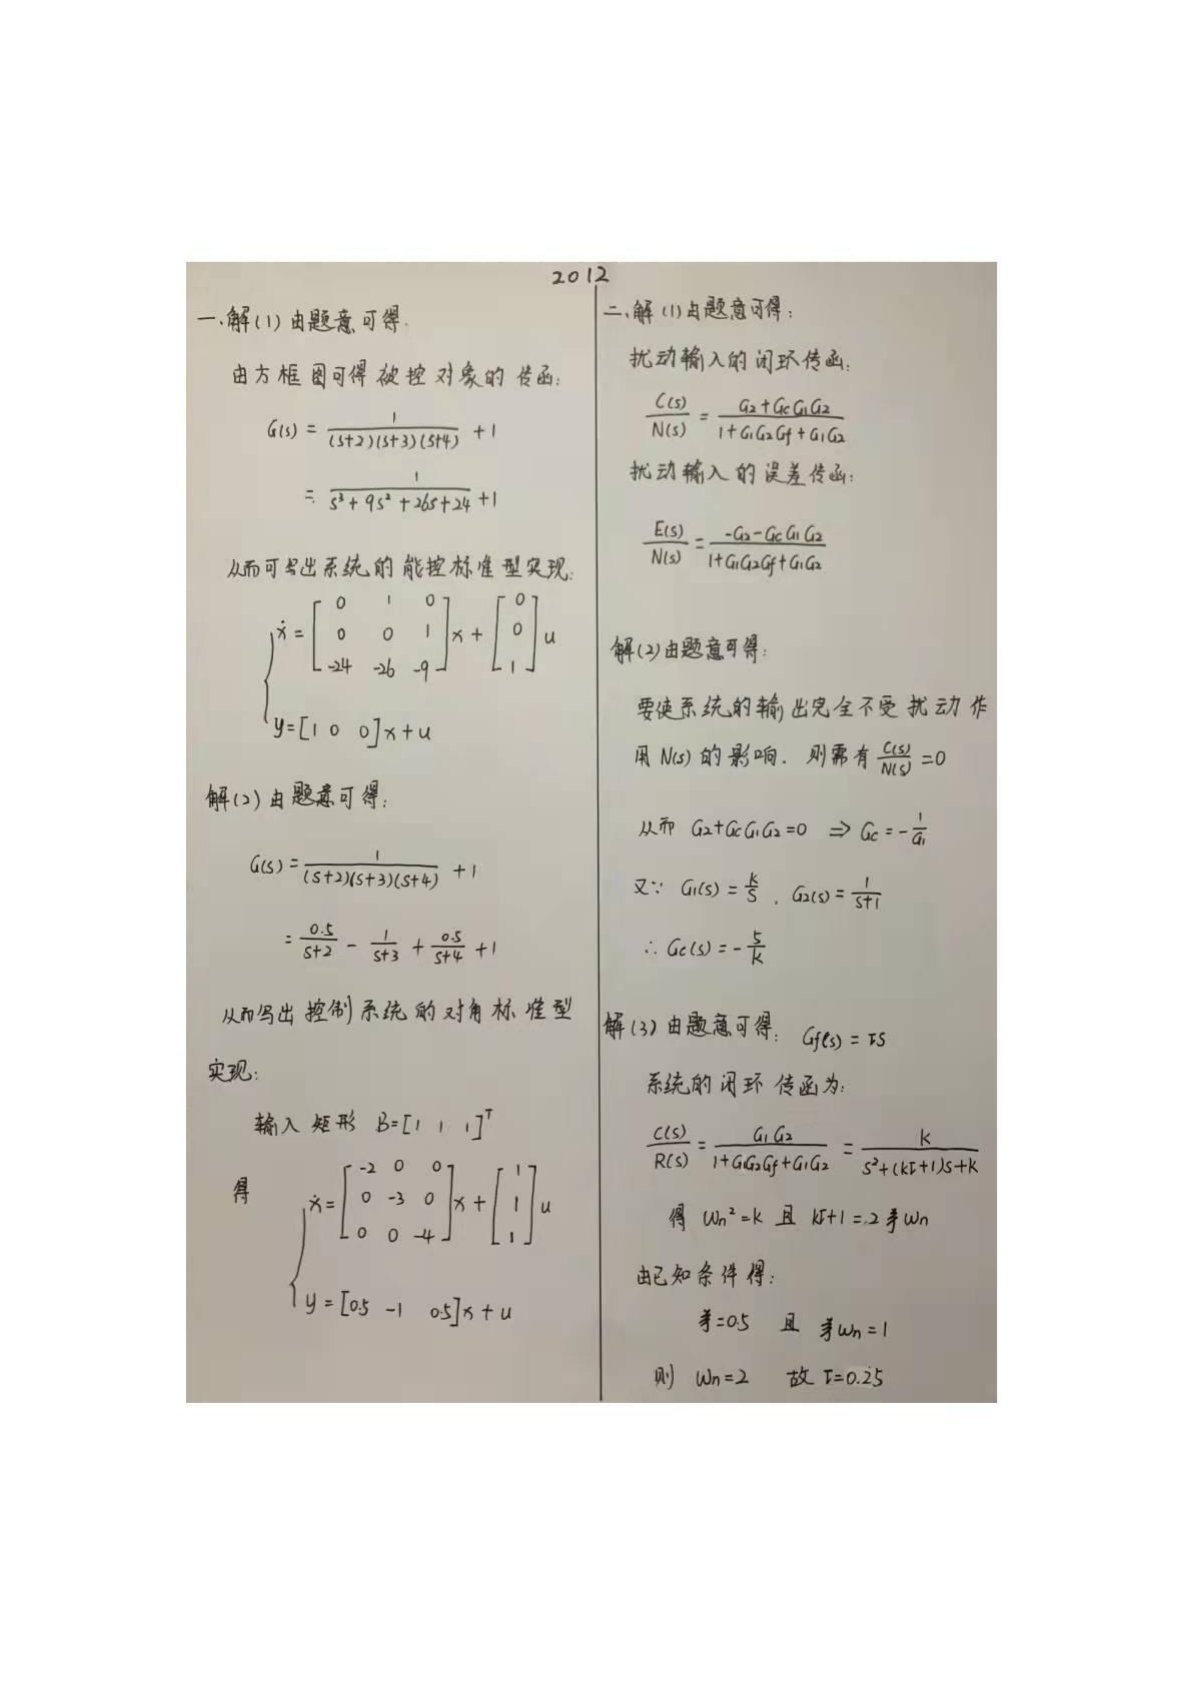 2012
一、解(1) 由题意可得.
由方框图可得被控对象的传函:
G(s) = 1/((s+2)(s+3)(s+4)) + 1
= 1/(s³+9s²+26s+24) + 1
从而可写出系统的能控标准型实现:
ẋ = [0 1 0; 0 0 1; -24 -26 -9] x + [0; 0; 1] u
y = [1 0 0] x + u
解(2) 由题意可得:
G(s) = 1/((s+2)(s+3)(s+4)) + 1
= 0.5/(s+2) - 1/(s+3) + 0.5/(s+4) + 1
从而写出控制系统的对角标准型
实现:
输入矩形 B=[1 1 1]ᵀ
得
ẋ = [-2 0 0; 0 -3 0; 0 0 -4] x + [1; 1; 1] u
y = [0.5 -1 0.5] x + u
二、解 (1) 由题意可得:
扰动输入的闭环传函:
C(s)/N(s) = (G2+GcG1G2)/(1+G1G2Gf+G1G2)
扰动输入的误差传函:
E(s)/N(s) = (-G2-GcG1G2)/(1+G1G2Gf+G1G2)
解(2) 由题意可得:
要使系统的输出完全不受扰动作
用 N(s) 的影响. 则需有 C(s)/N(s) = 0
从而 G2+GcG1G2=0 ⇒ Gc = -1/G1
又∵ G1(s) = k/s , G2(s) = 1/(s+1)
∴ Gc(s) = -s/k
解(3) 由题意可得: Gf(s) = τs
系统的闭环传函为:
C(s)/R(s) = G1G2/(1+G1G2Gf+G1G2) = k/(s²+(kτ+1)s+k)
得 ωn²=k 且 kτ+1=2ξωn
由已知条件得:
ξ=0.5 且 ξωn=1
则 ωn=2 故 τ=0.25